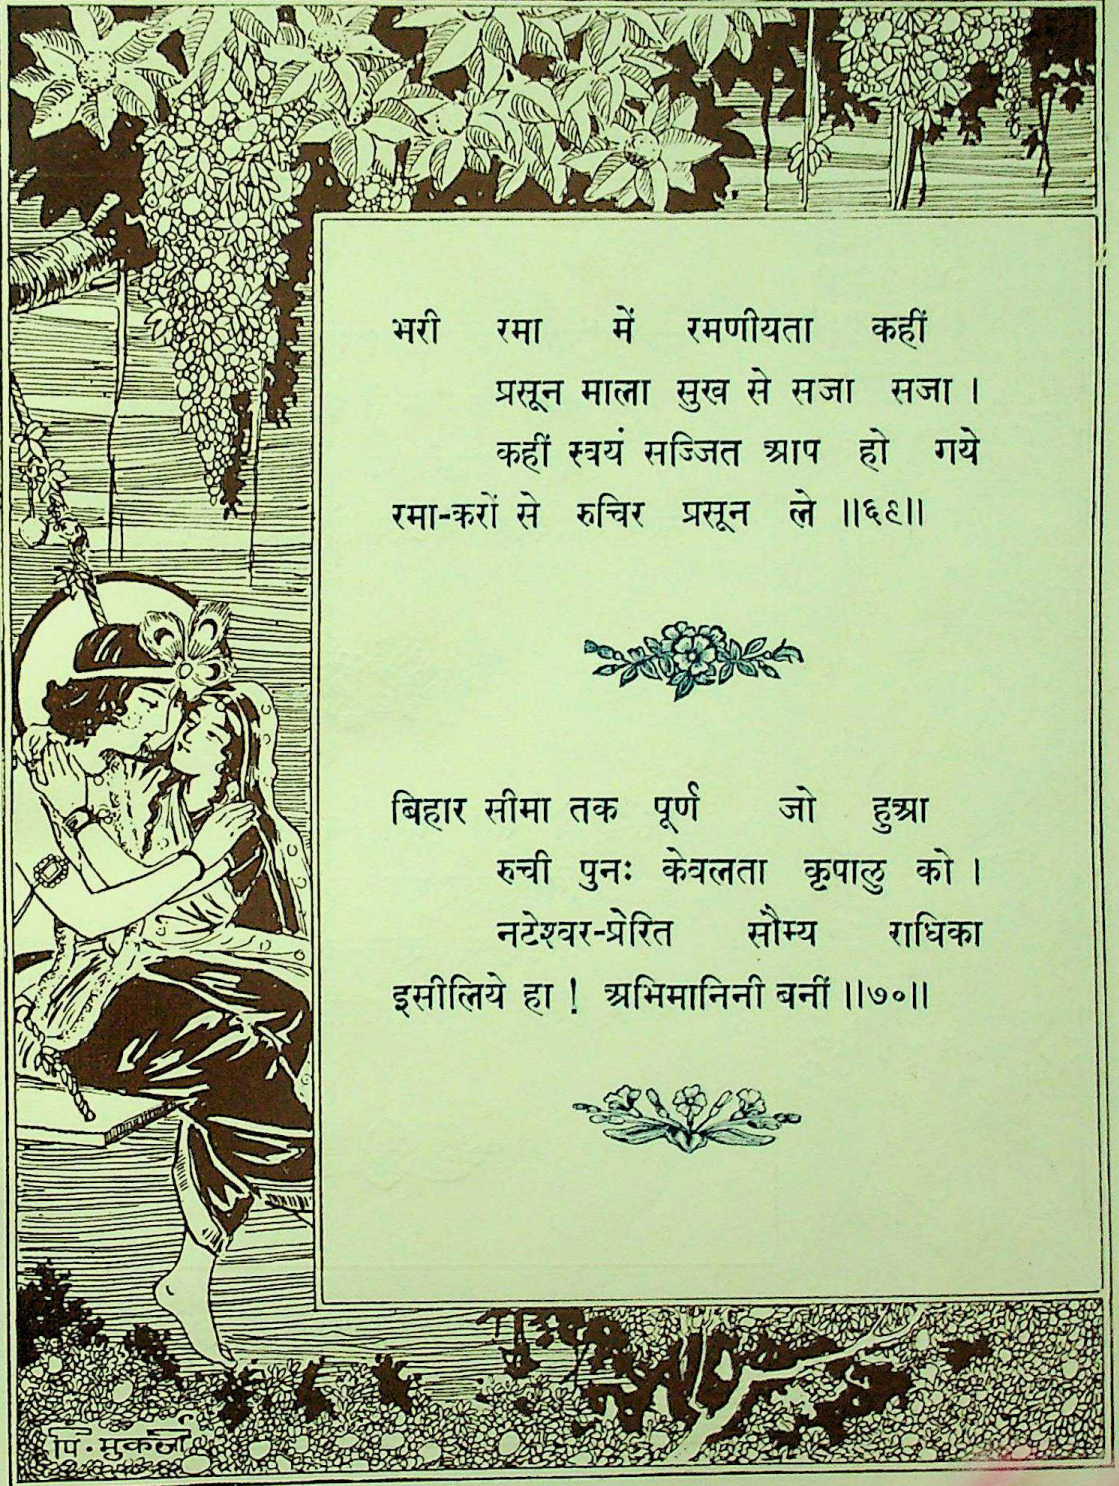 भरी रमा में रमणीयता कहीं
प्रसून माला सुख से सजा सजा ।
कहीं स्वयं सज्जित आप हो गये
रमा-करों से रुचिर प्रसून ले ॥६९॥
बिहार सीमा तक पूर्ण जो हुआ
रुची पुनः केवलता कृपालु को ।
नटेश्वर-प्रेरित सौम्य राधिका
इसीलिये हा ! अभिमानिनी बनीं ॥७०॥
पि. मुकर्जी